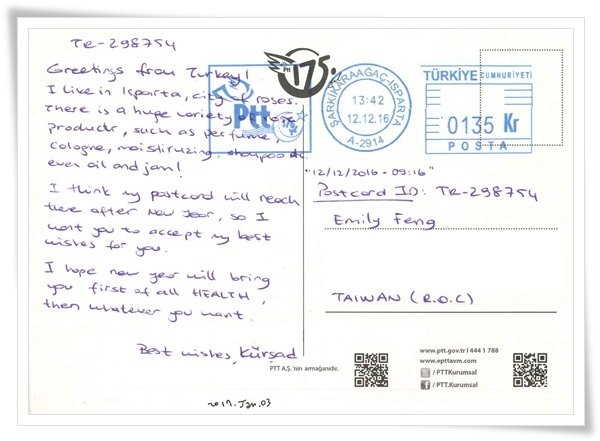 TR-298754
Greetings from Turkey!
I like in Isparta, city of roses.
There is a huge variety of rose
products, such as perfume,
cologne, moistiruzing, shampoo &
even oil and jam!
I think my postcard will reach
there after New Year, so I
want you to accept my best
wishes for you.
I hope new year will bring
you first of all HEALTH,
then whatever you want.
Best wishes, Kürşad
2017. Jan. 03
Ptt
175.
Ptt
ŞARKİKARAAĞAÇ-ISPARTA
13:42
12.12.16
A-2914
TÜRKİYE CUMHURİYETİ
0135 Kr
POSTA
"12/12/2016 - 09:16"
Postcard ID: TR-298754
Emily Feng
TAIWAN (R.O.C)
PTT A.Ş.'nin armağanıdır.
www.ptt.gov.tr | 444 1 788
www.epttavm.com
/ PTTKurumsal
/ PTT.Kurumsal